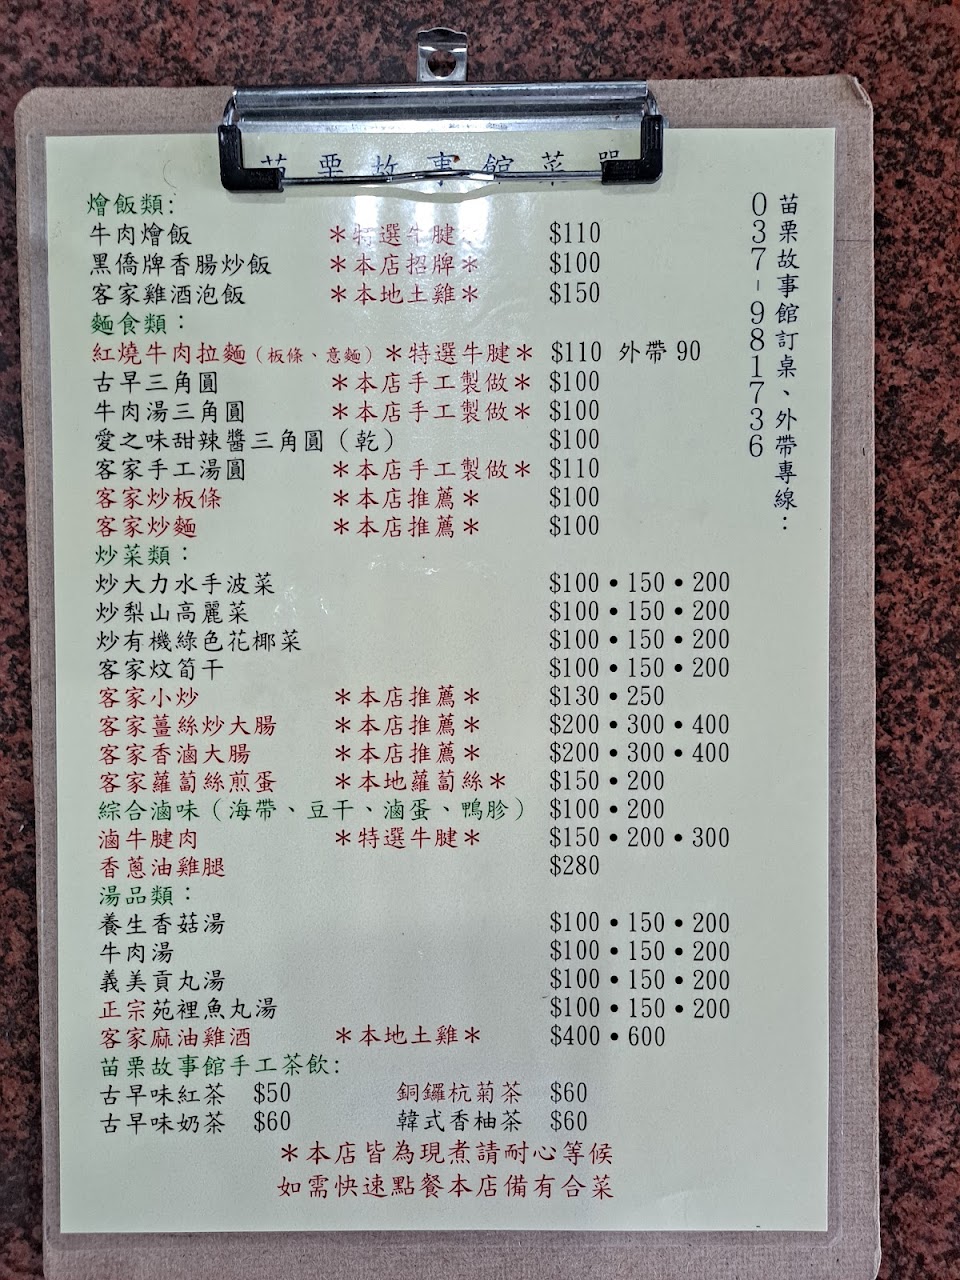 苗栗故事館菜單
燴飯類:
牛肉燴飯 *特選牛腱* $110
黑僑牌香腸炒飯 *本店招牌* $100
客家雞酒泡飯 *本地土雞* $150
麵食類:
紅燒牛肉拉麵(板條、意麵) *特選牛腱* $110 外帶90
古早三角圓 *本店手工製做* $100
牛肉湯三角圓 *本店手工製做* $100
愛之味甜辣醬三角圓(乾) $100
客家手工湯圓 *本店手工製做* $110
客家炒板條 *本店推薦* $100
客家炒麵 *本店推薦* $100
炒菜類:
炒大力水手波菜 $100•150•200
炒梨山高麗菜 $100•150•200
炒有機綠色花椰菜 $100•150•200
客家炆筍干 $100•150•200
客家小炒 *本店推薦* $130•250
客家薑絲炒大腸 *本店推薦* $200•300•400
客家香滷大腸 *本店推薦* $200•300•400
客家蘿蔔絲煎蛋 *本地蘿蔔絲* $150•200
綜合滷味(海帶、豆干、滷蛋、鴨胗) $100•200
滷牛腱肉 *特選牛腱* $150•200•300
香蔥油雞腿 $280
湯品類:
養生香菇湯 $100•150•200
牛肉湯 $100•150•200
義美貢丸湯 $100•150•200
正宗苑裡魚丸湯 $100•150•200
客家麻油雞酒 *本地土雞* $400•600
苗栗故事館手工茶飲:
古早味紅茶 $50 銅鑼杭菊茶 $60
古早味奶茶 $60 韓式香柚茶 $60
*本店皆為現煮請耐心等候
如需快速點餐本店備有合菜
苗栗故事館訂桌、外帶專線:
037-981736